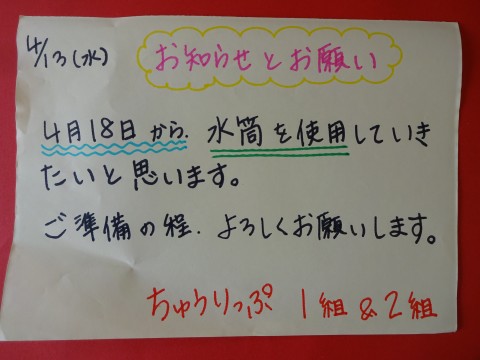 4/13(水)
お知らせとお願い
4月18日から、水筒を使用していき
たいと思います。
ご準備の程、よろしくお願いします。
ちゅうりっぷ 1組&2組